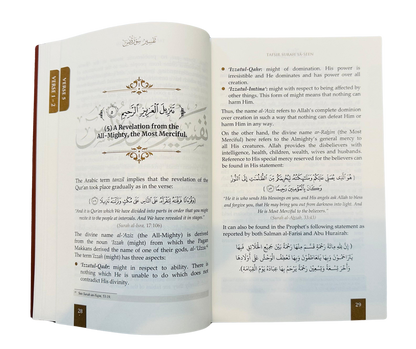 تفسير سورة يس
VERSE 5
تَنزِيلَ ٱلْعَزِيزِ ٱلرَّحِيمِ
(5) A Revelation from the
All-Mighty, the Most Merciful,
The Arabic term tanzil implies that the revelation of the
Qur'an took place gradually as in the verse:
وَقُرْءَانًا فَرَقْنَٰهُ لِتَقْرَأَهُۥ عَلَى ٱلنَّاسِ عَلَىٰ مُكْثٍ وَنَزَّلْنَٰهُ تَنزِيلًا
"And it is Qur'an which We have divided into parts in order that you might
recite it to the people at intervals. And We have revealed it in stages".
(Surah al-Isra, 17:106)
The divine name al-'Aziz (the All-Mighty) is derived
from the noun 'Izzah (might) from which the Pagan
Makkans derived the name of one of their gods, al-'Uzza.
The term 'Izzah (might) has three aspects:
'Izzatul-Qadr: might in respect to ability. There is
nothing which He is unable to do which does not
contradict His divinity.
28
'Izzatul-Qahr: might of domination. His power is
irresistible and He dominates and has power over all
creation.
'Izzatul-Imtina': might with respect to being affected by
other things. This form of might means that nothing can
harm Him.
Thus, the name al-'Aziz refers to Allah's complete dominion
over creation in such a way that nothing can defeat Him or
harm Him in any way.
On the other hand, the divine name ar-Rahim (the Most
Merciful) here refers to the Almighty's general mercy to
all His creatures. Allah provides the disbelievers with
intelligence, health, children, wealth, wives and husbands.
Reference to His special mercy reserved for the believers can
be found in His statement:
هُوَ ٱلَّذِى يُصَلِّى عَلَيْكُمْ وَمَلَٰٓئِكَتُهُۥ لِيُخْرِجَكُم مِّنَ ٱلظُّلُمَٰتِ إِلَى ٱلنُّورِ
وَكَانَ بِٱلْمُؤْمِنِينَ رَحِيمًا
"He it is who sends His blessings on you, and His angels ask Allah to bless
and forgive you, that He may bring you out from darkness into light. And
He is Most Merciful to the believers."
(Surah al-Ahzab, 33:43)
It can also be found in the Prophet's following statement as
reported by both Salman al-Farisi and Abu Hurairah:
29